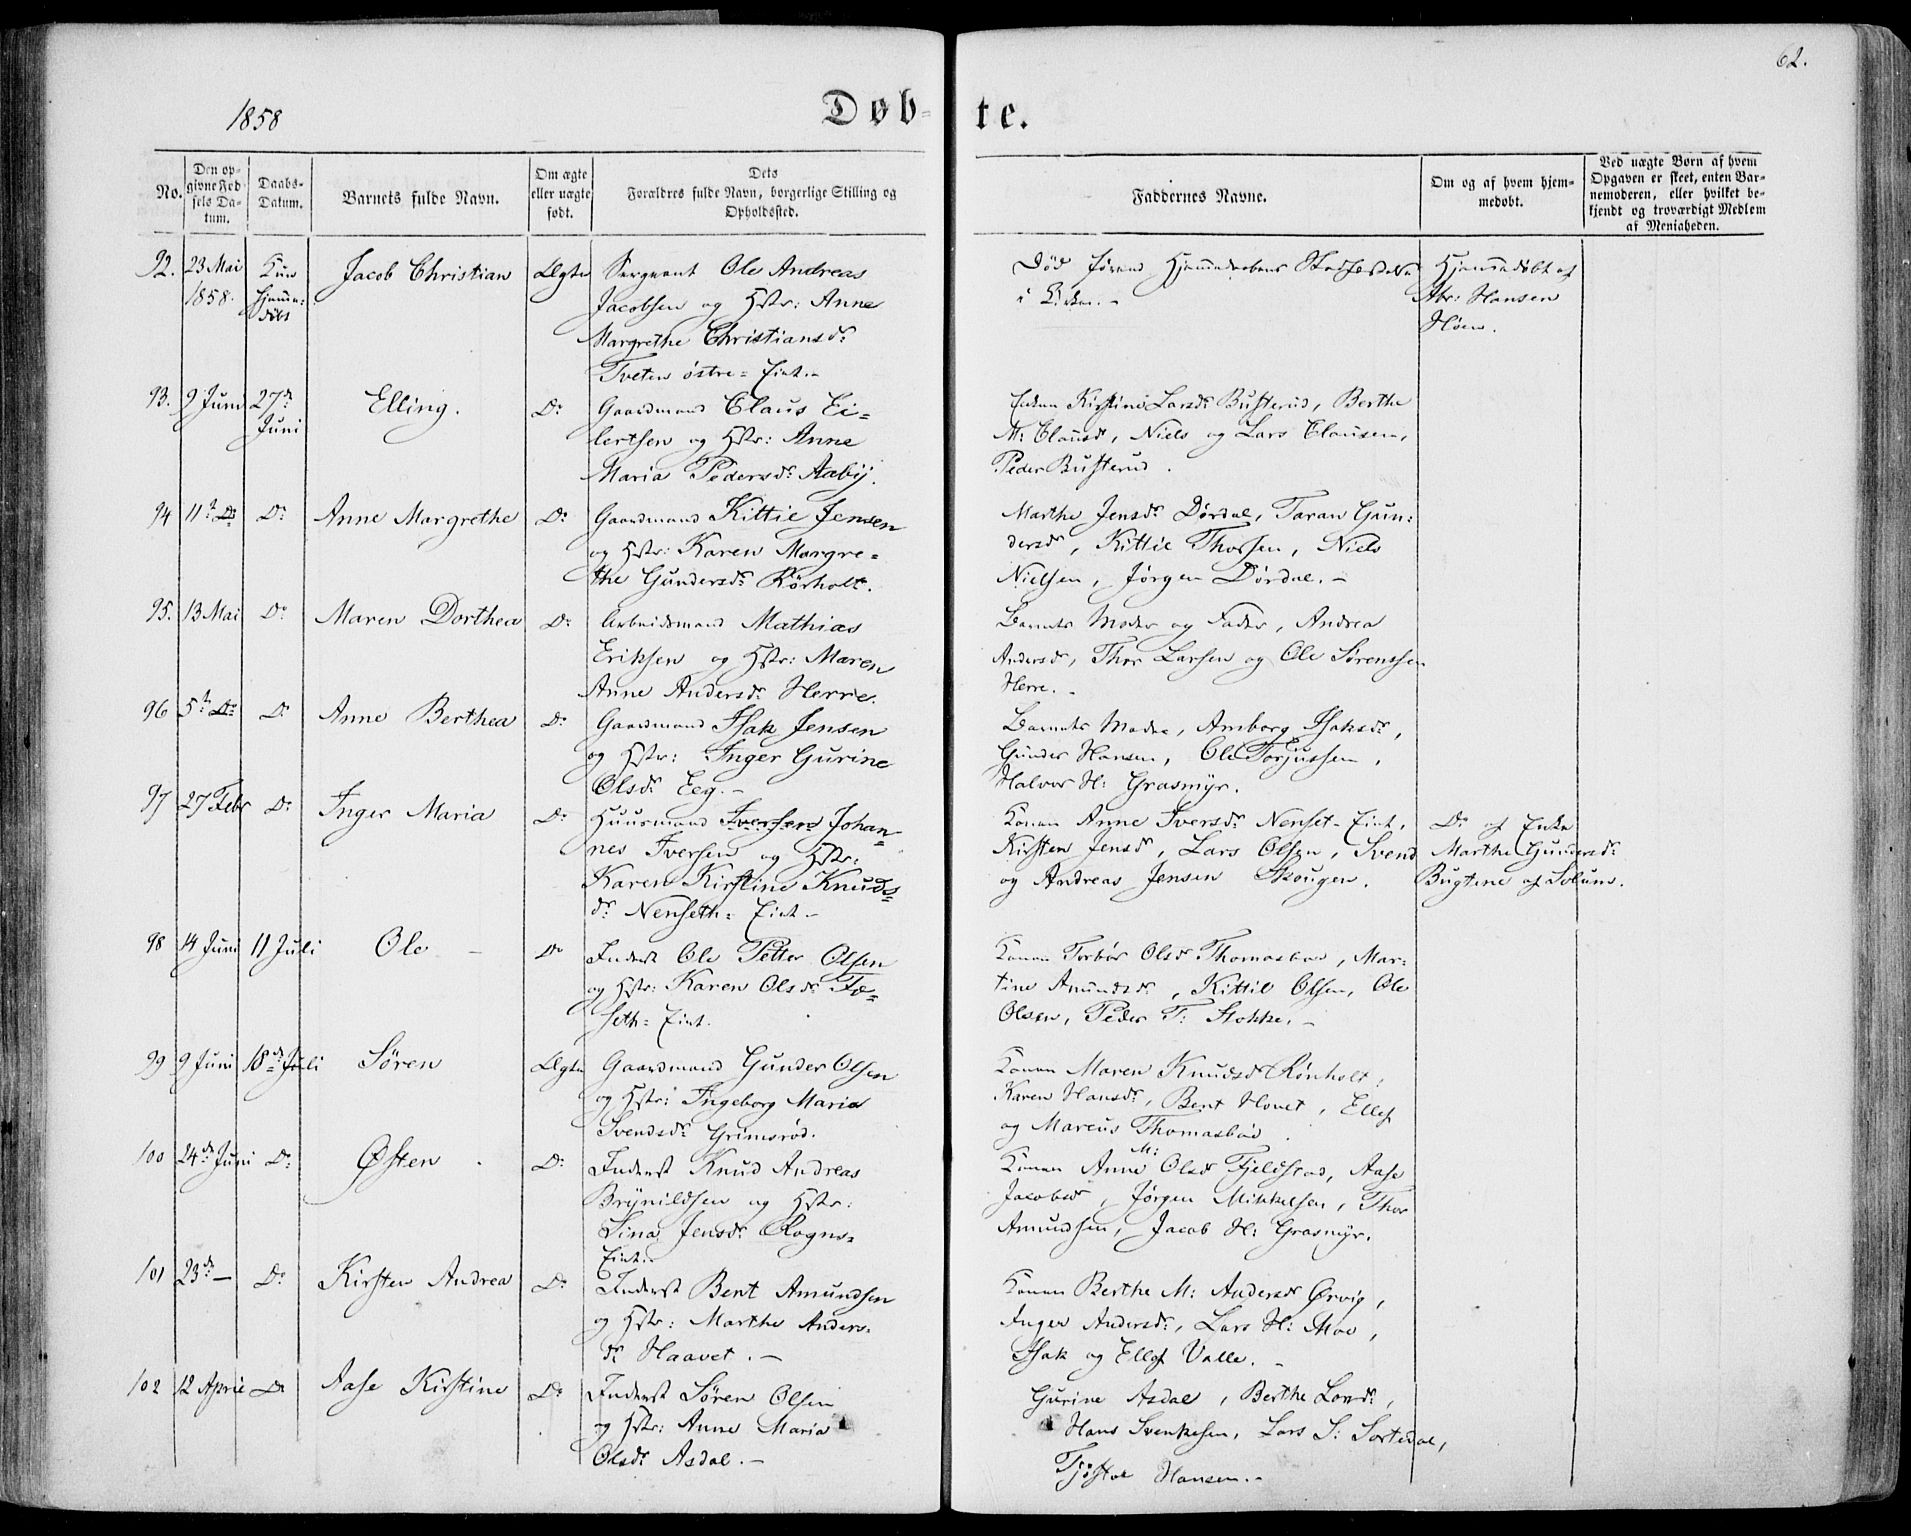 62.
1858
Døb-te.
No.
Den op-
givne Fød-
sels Da-
tum.
Daabs-
Datum.
Barnets fulde Navn.
Om ægte
eller uægte
født.
Dets
Forældres fulde Navn, borgerlige Stilling og
Opholdssted.
Faddernes Navne.
Om og af hvem hjem-
medøbt.
Ved uægte Børn af hvem
Opgaven er skeet, enten Bar-
nemoderen, eller hvilket be-
kjendt og troværdigt Medlem
af Menigheden.
92. 23 Mai Kun Jacob Christian Ægte Sergeant Ole Andreas
1858. hjemme- Jacobsen og Hstr: Anne
døbt Margrethe Christiansdr
Tveten østre = Eiet.-
Død førend Hjemmedaabens Stadfæstelse Hjemmedøbt af
i Kirken.- Abr: Hansen
Høen.
93. 9 Juni 27de Elling. Do Gaardmand Claus Ei=
Juni lertsen og Hstr: Anne
Maria Pedersdr Aaby.
Enken Kirstine Larsdr Busterud, Berthe
M: Clausdr, Niels og Lars Clausen,
Peder Busterud.
94 11te Do Do Anne Margrethe Do Gaardmand Kittil Jensen
og Hstr: Karen Margre=
the Gundersdr Rörholt.
Marthe Jensdr Dördal, Taran Gun:
dersdr, Kittil Thorsen, Niels
Nielsen, Jørgen Dördal.-
95. 13 Mai Do Maren Dorthea Do Arbeidsmand Mathias
Eriksen og Hstr: Maren
Anne Andersdr Herre.
Barnets Moder og Fader, Andrea
Andersdr, Thor Larsen og Ole Sørenssen
Herre.-
96 5te Do Do Anne Berthea Do Gaardmand Isak Jensen
og Hstr: Inger Gurine
Olsdr Eeg.-
Barnets Moder, Amborg Isaksdr,
Gunder Hansen, Ole Torjussen,
Halvor H: Grasmyr.
97 27 Febr Do Inger Maria Do Huusmand Iversen Johan=
nes Iversen og Hstr:
Karen Kirstine Knuds=
dr Nenseth = Eiet.-
Konen Anne Iversdr Nenset = Eiet, Do af Enke
Kirsten Jensdr, Lars Olsen, Svend Marthe Gundersdr
og Andreas Jensen Skougen. Bugtene af Solum.
98 14 Juni 11 Juli Ole - Do Inderst Ole Petter Olsen
og Hstr: Karen Olsdr To=
seth = Eiet.
Konen Torbör Olsdr Thomasbød, Mar=
tine Amundsdr, Kittil Olsen, Ole
Olsen, Peder T: Stokke.-
99 9 Juni 18de Juli Sören Ægte Gaardmand Gunder Olsen
og Hstr: Ingeborg Maria
Svendsdr Grimsrød.
Konen Maren Knudsdr Rønholt,
Karen Hansdr, Bent Hovet, Ellef
og Marcus Thomasbød.
100 24de Juni Do Østen. Do Inderst Knud Andreas
Brynildsen og Hstr:
Lina Jensdr Rogns=
Eiet.-
Konen Anne M: Olsdr Fjeldstad, Aase
Jacobsdr, Jørgen Mikkelsen, Thor
Amundsen, Jacob H: Grasmyr.
101 23de - Do Kirsten Andrea Do Inderst Bent Amundsen
og Hstr: Marthe Anders=
dr Haavet.-
Konen Berthe M: Andersdr Ørvig,
Inger Andersdr, Lars H: Moe,
Isak og Ellef Valle.-
102 12 April Do Aase Kirstine Do Inderst Sören Olsen
og Hstr: Anne Maria
Olsdr Asdal.-
Gurine Asdal, Berthe Larsdr,
Hans Svenkesen, Lars S: Sortedal,
Tjøstol Hansen.-